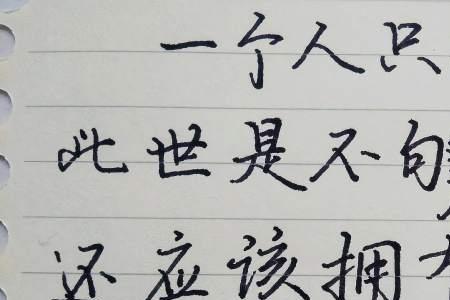 一个人只
此世是不
还应该拥